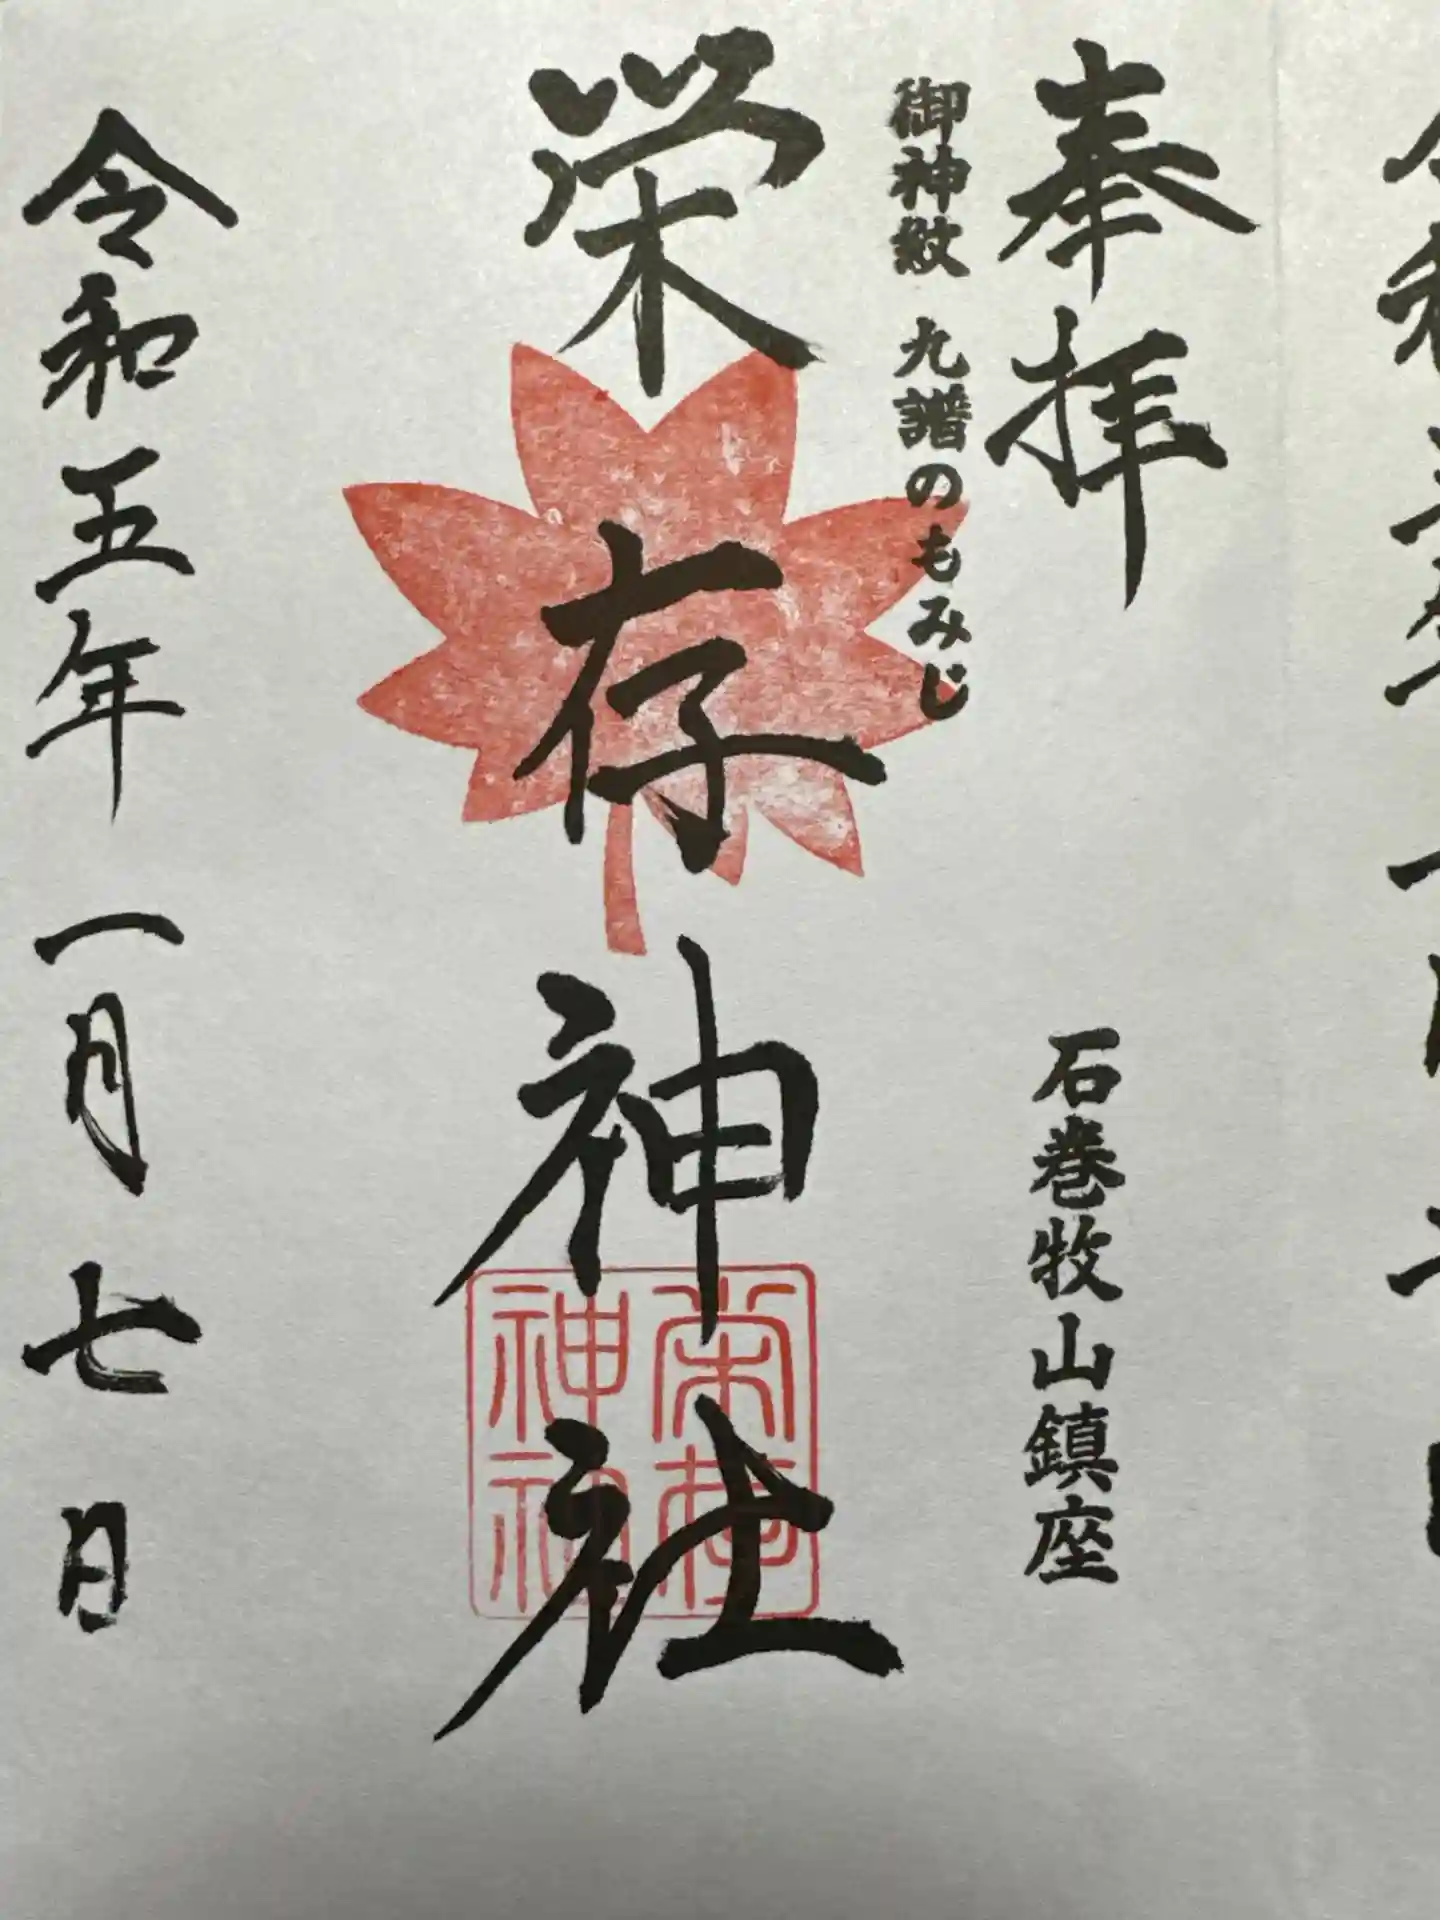 奉拝
石巻牧山鎮座
御神紋 九譜のもみじ
栄存神社
栄存
神社
令和五年 一月 七日